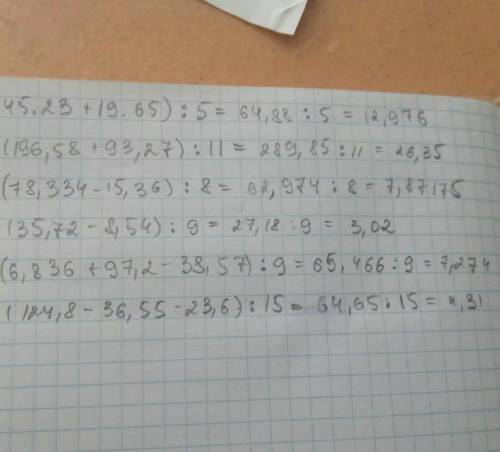 45.23 + 19.65) : 5 = 64,88 : 5 = 12,976
(196,58 + 93,27) : 11 = 289,85 : 11 = 26,35
(78,334 - 15,36) : 8 = 62,974 : 8 = 7,87175
(35,72 - 8,54) : 9 = 27,18 : 9 = 3,02
(6,836 + 97,2 - 38,57) : 9 = 65,466 : 9 = 7,274
(124,8 - 36,55 - 23,6) : 15 = 64,65 : 15 = 4,31